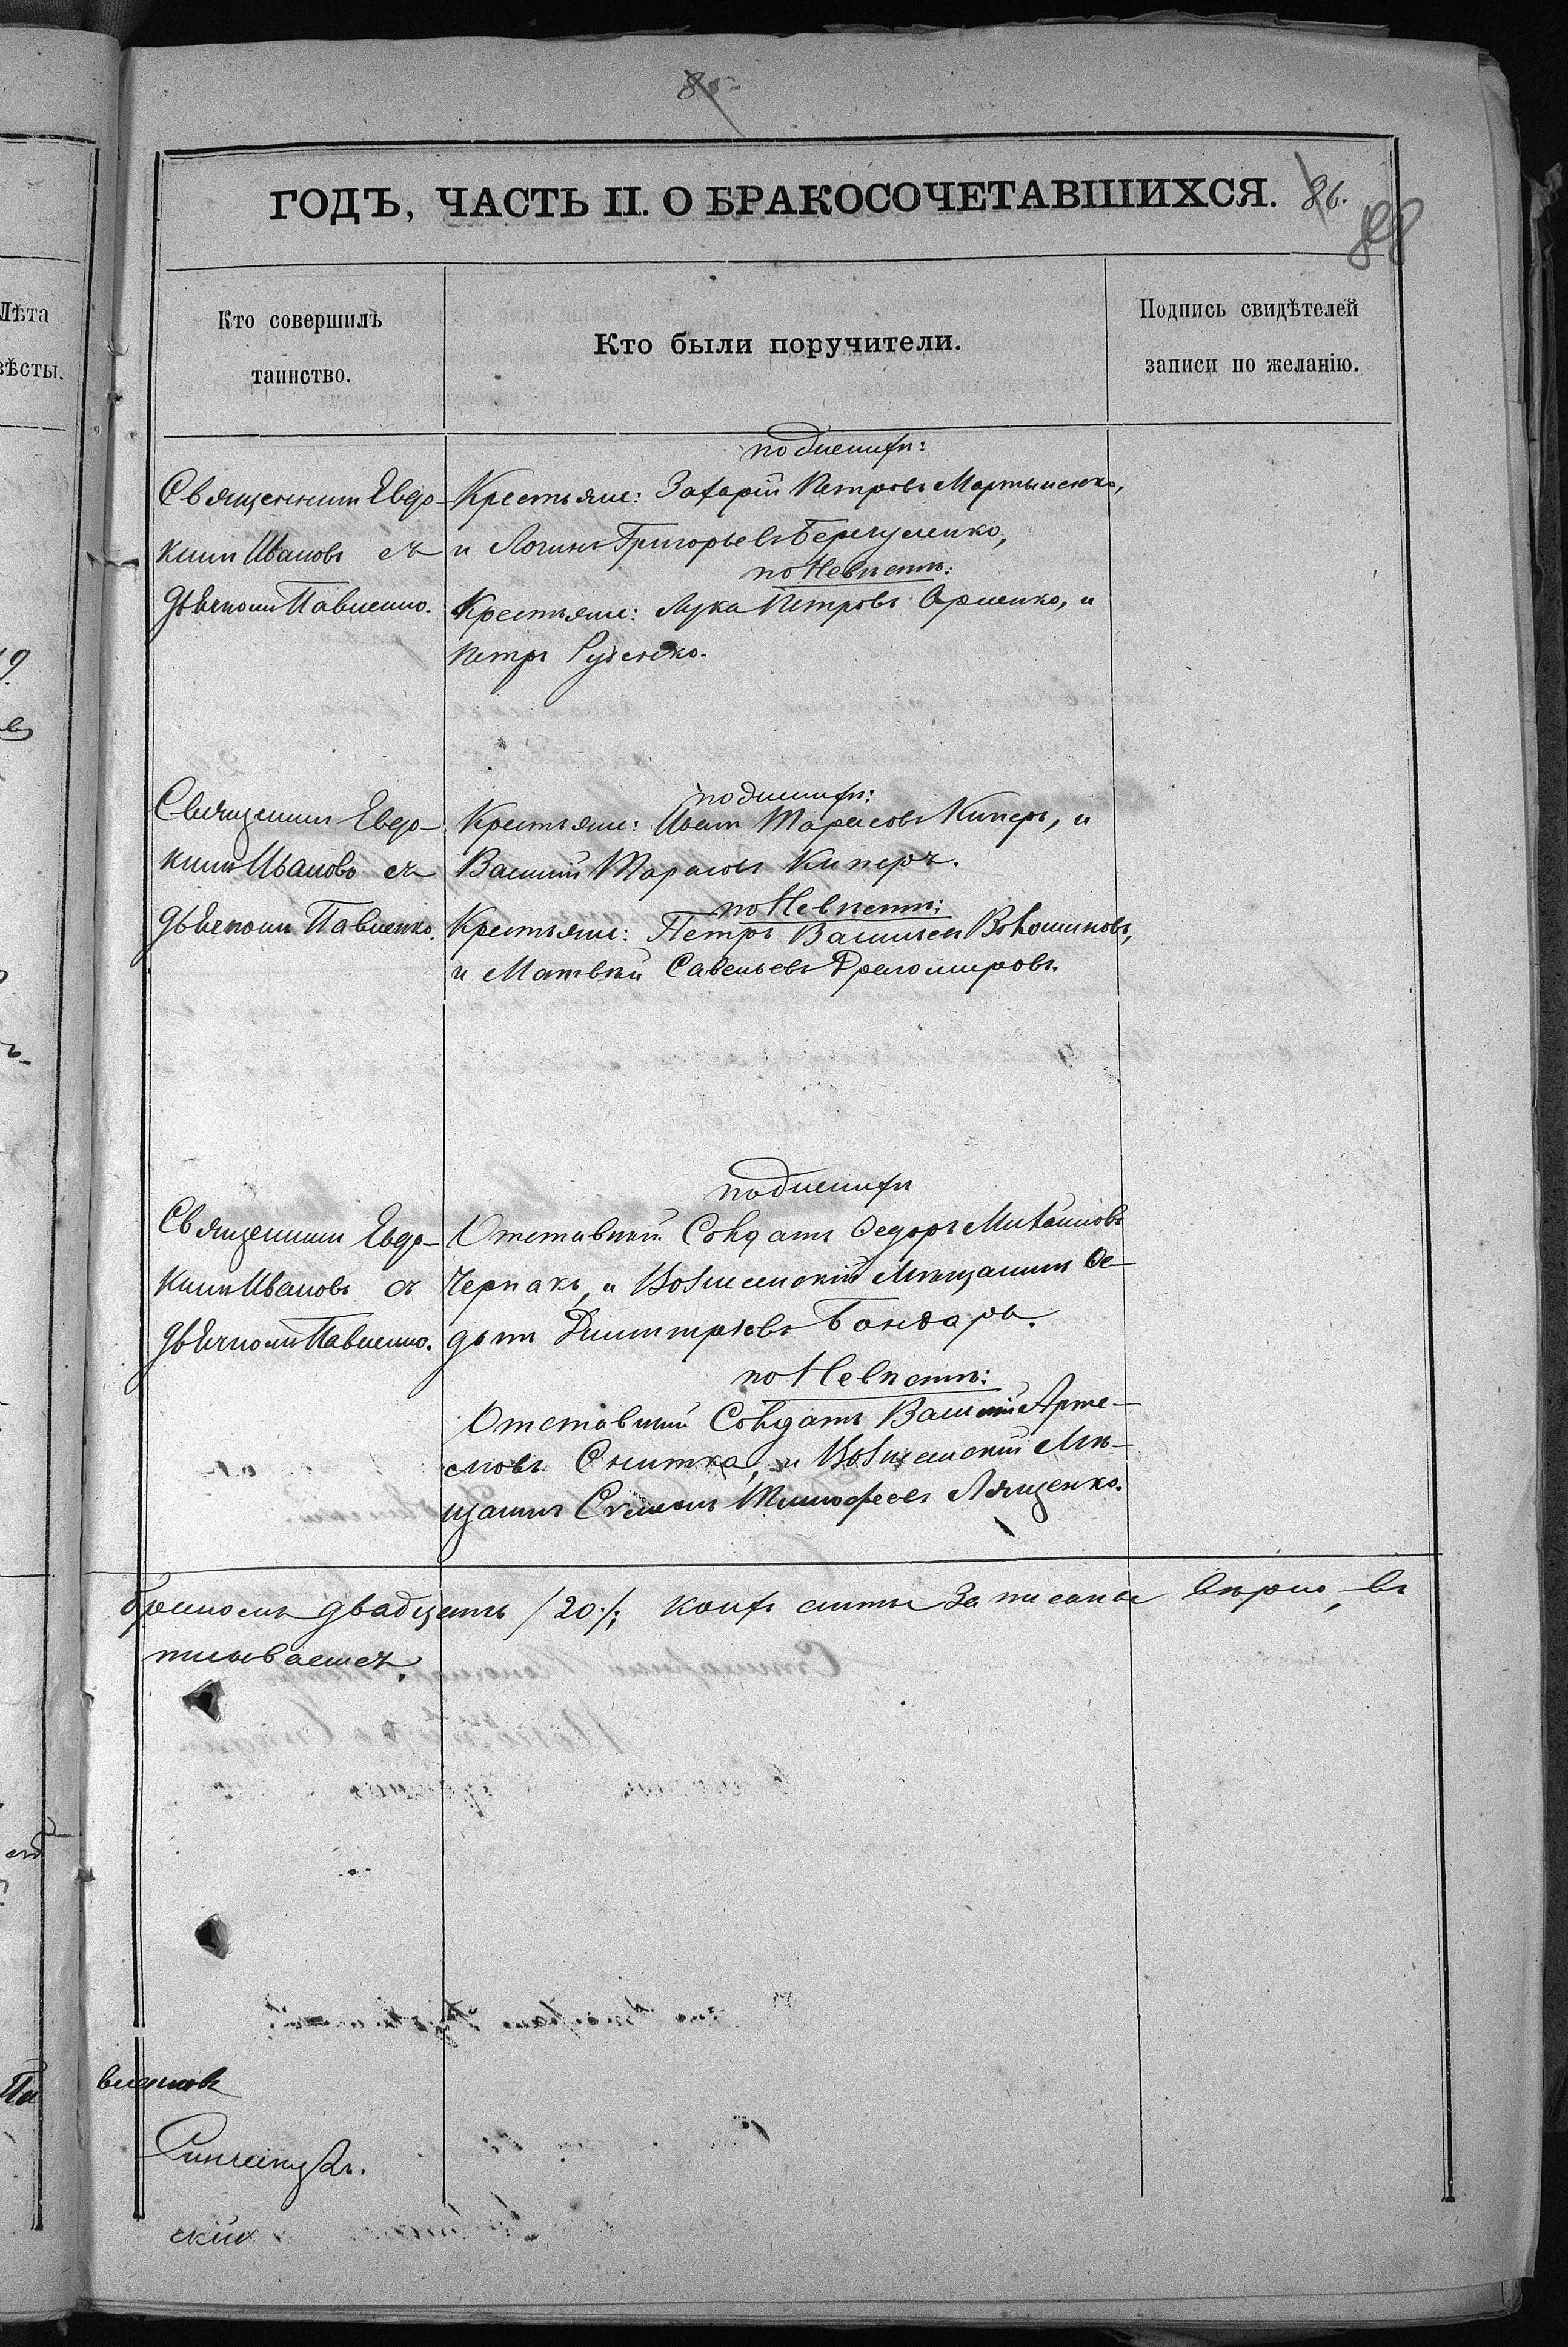 85
ГОДЪ, ЧАСТЬ II. О БРАКОСОЧЕТАВШИХСЯ. 86.
88
Лѣта
вѣсты.
Кто совершилъ
таинство.
Кто были поручители.
Подпись свидѣтелей
записи по желанію.
по Женихѣ:
Священникъ Евдо-
кимъ Ивановъ съ
дьячкомъ Павленко.
Крестьяне: Захарій Петровъ Мартыненко,
и Логинъ Григорьевъ
по Невѣстѣ:
Крестьяне: Лука Петровъ и
Петръ Руденко.
по Женихѣ:
Священникъ Евдо-
кимъ Ивановъ съ
дьячкомъ Павленко.
Крестьяне: Иванъ Тарасовъ Киперъ, и
Василій Тарасовъ Киперъ.
по Невѣстѣ:
Крестьяне: Петръ Васильевъ Волошиновъ,
и Матвѣй Савельевъ Драгомировъ.
по Женихѣ
Священникъ Евдо-
кимъ Ивановъ съ
дьячкомъ Павленко.
Отставный Солдатъ Ѳедоръ Михайловъ
Черпакъ, и Вознесенскій Мѣщанинъ Ѳе-
дотъ Димитріевъ Бондарь.
по Невѣстѣ:
Отставный Солдатъ Василій Арте-
мовъ Снитка, и Вознесенскій Мѣ-
щанинъ Семенъ Тимофеевъ Лященко.
двадцать /20/; кои записаны вѣрно, въ
скій